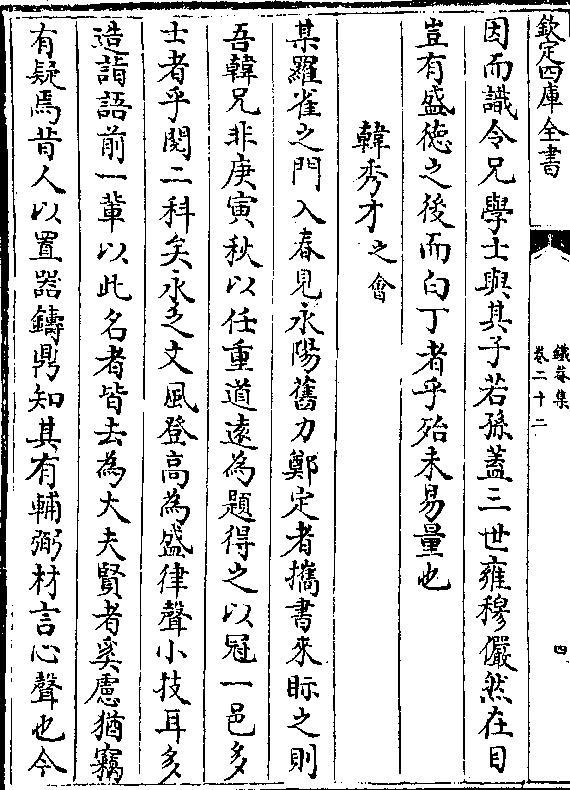 欽定四庫全書
鐵菴集
卷二十二
四
因而識令兄學士與其子若孫蓋三世雍穆儼然在目
豈有盛徳之後而白丁者乎殆未易量也
韓秀才之會
某羅雀之門入春見永陽舊力鄭定者攜書來眎之則
吾韓兄非庚寅秋以任重道遠為題得之以冠一邑多
士者乎閱二科矣永之文風登高為盛律聲小技耳多
造詣語前一輩以此名者皆去為大夫賢者奚慮猶竊
有疑焉昔人以置器鑄鼎知其有輔弼材言心聲也今